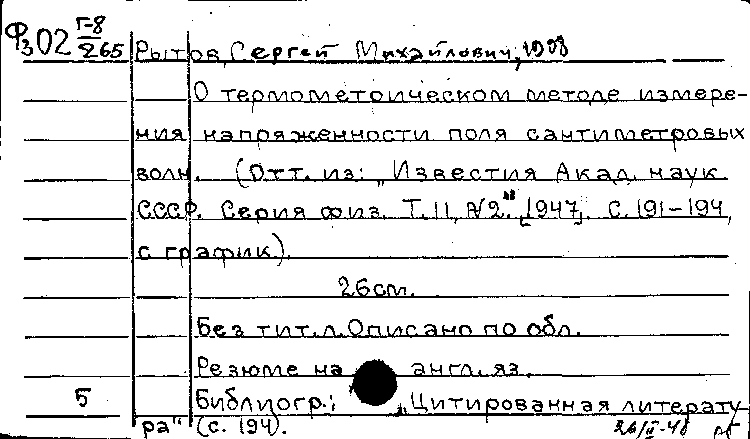 Фз 02 Г-8/265
Рытов, Сергей Михайлович, 1908
О термометрическом методе измере-
ния напряженности поля сантиметровых
волн. (Отт. из: „Известия Акад. наук
СССР. Серия физ. Т. 11, №2", [1947], С. 191-194,
с график.).
26 см.
Без тит. л. Описано по обл.
Резюме на англ. яз.
5 Библиогр.: „Цитированная литерату-
ра" (с. 194).